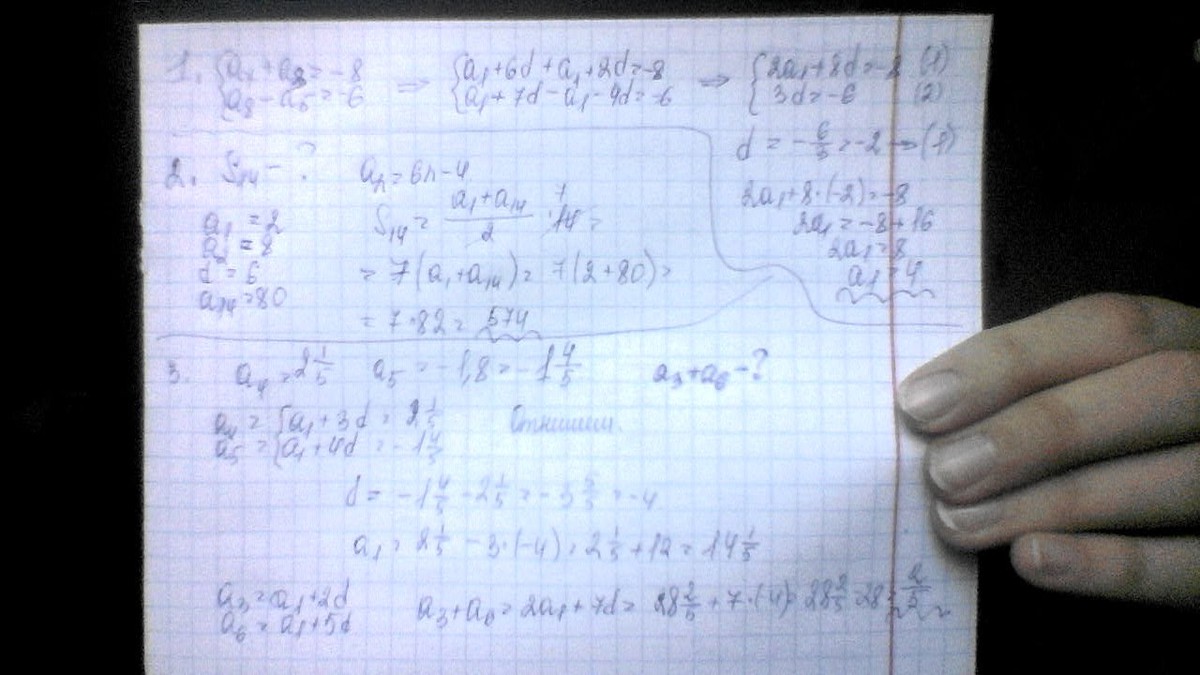 1. {a₇ + a₃ = -8 ⇒ {a₁+6d+a₁+2d=-8 ⇒ {2a₁+8d=-8 (1)
{a₈ - a₅ = -6 {a₁+7d-a₁-4d=-6 {3d=-6 (2)
d = -6/3 = -2 → (1)
2a₁+8·(-2)=-8
2a₁=-8+16
2a₁=8
a₁=4
2. S₁₄ - ? aₙ=6n-4
a₁ = 2
= 8
d = 6
a₁₄ = 80
S₁₄ = (a₁+a₁₄)/2 · 14 7 =
= 7(a₁+a₁₄) = 7(2+80) =
= 7·82 = 574
3. a₄ = 2 1/5 a₅ = -1,8 = -1 4/5 a₃+a₆ - ?
a₄ = {a₁+3d = 2 1/5 Отнимем.
a₅ = {a₁+4d = -1 4/5
d = -1 4/5 - 2 1/5 = -3 5/5 = -4
a₁ = 2 1/5 - 3·(-4) = 2 1/5 + 12 = 14 1/5
a₃ = a₁+2d
a₆ = a₁+5d
a₃+a₆ = 2a₁+7d = 28 2/5 + 7·(-4) = 28 2/5 - 28 = 2/5